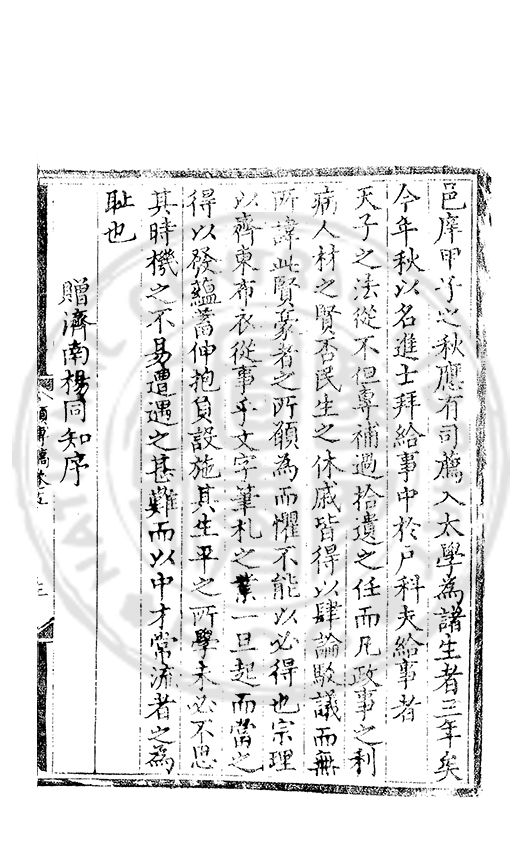 邑庠甲子之秋應有司薦入太學為諸生者三年矣
今年秋以名進士拜給事中於戶科夫給事者
天子之法從不但專補過拾遺之任而凡政事之利
病人材之賢否民生之休戚皆得以肆論駁議而無
所諱此賢豪者之所願為而懼不能以必得也宗理
以齊東布衣從事乎文字筆札之業一旦起而當之
得以發蘊蓄伸抱負設施其生平之所學未必不思
其時機之不易遭遇之甚難而以中才常流者之為
耻也
贈濟南楊同知序
稿卷五